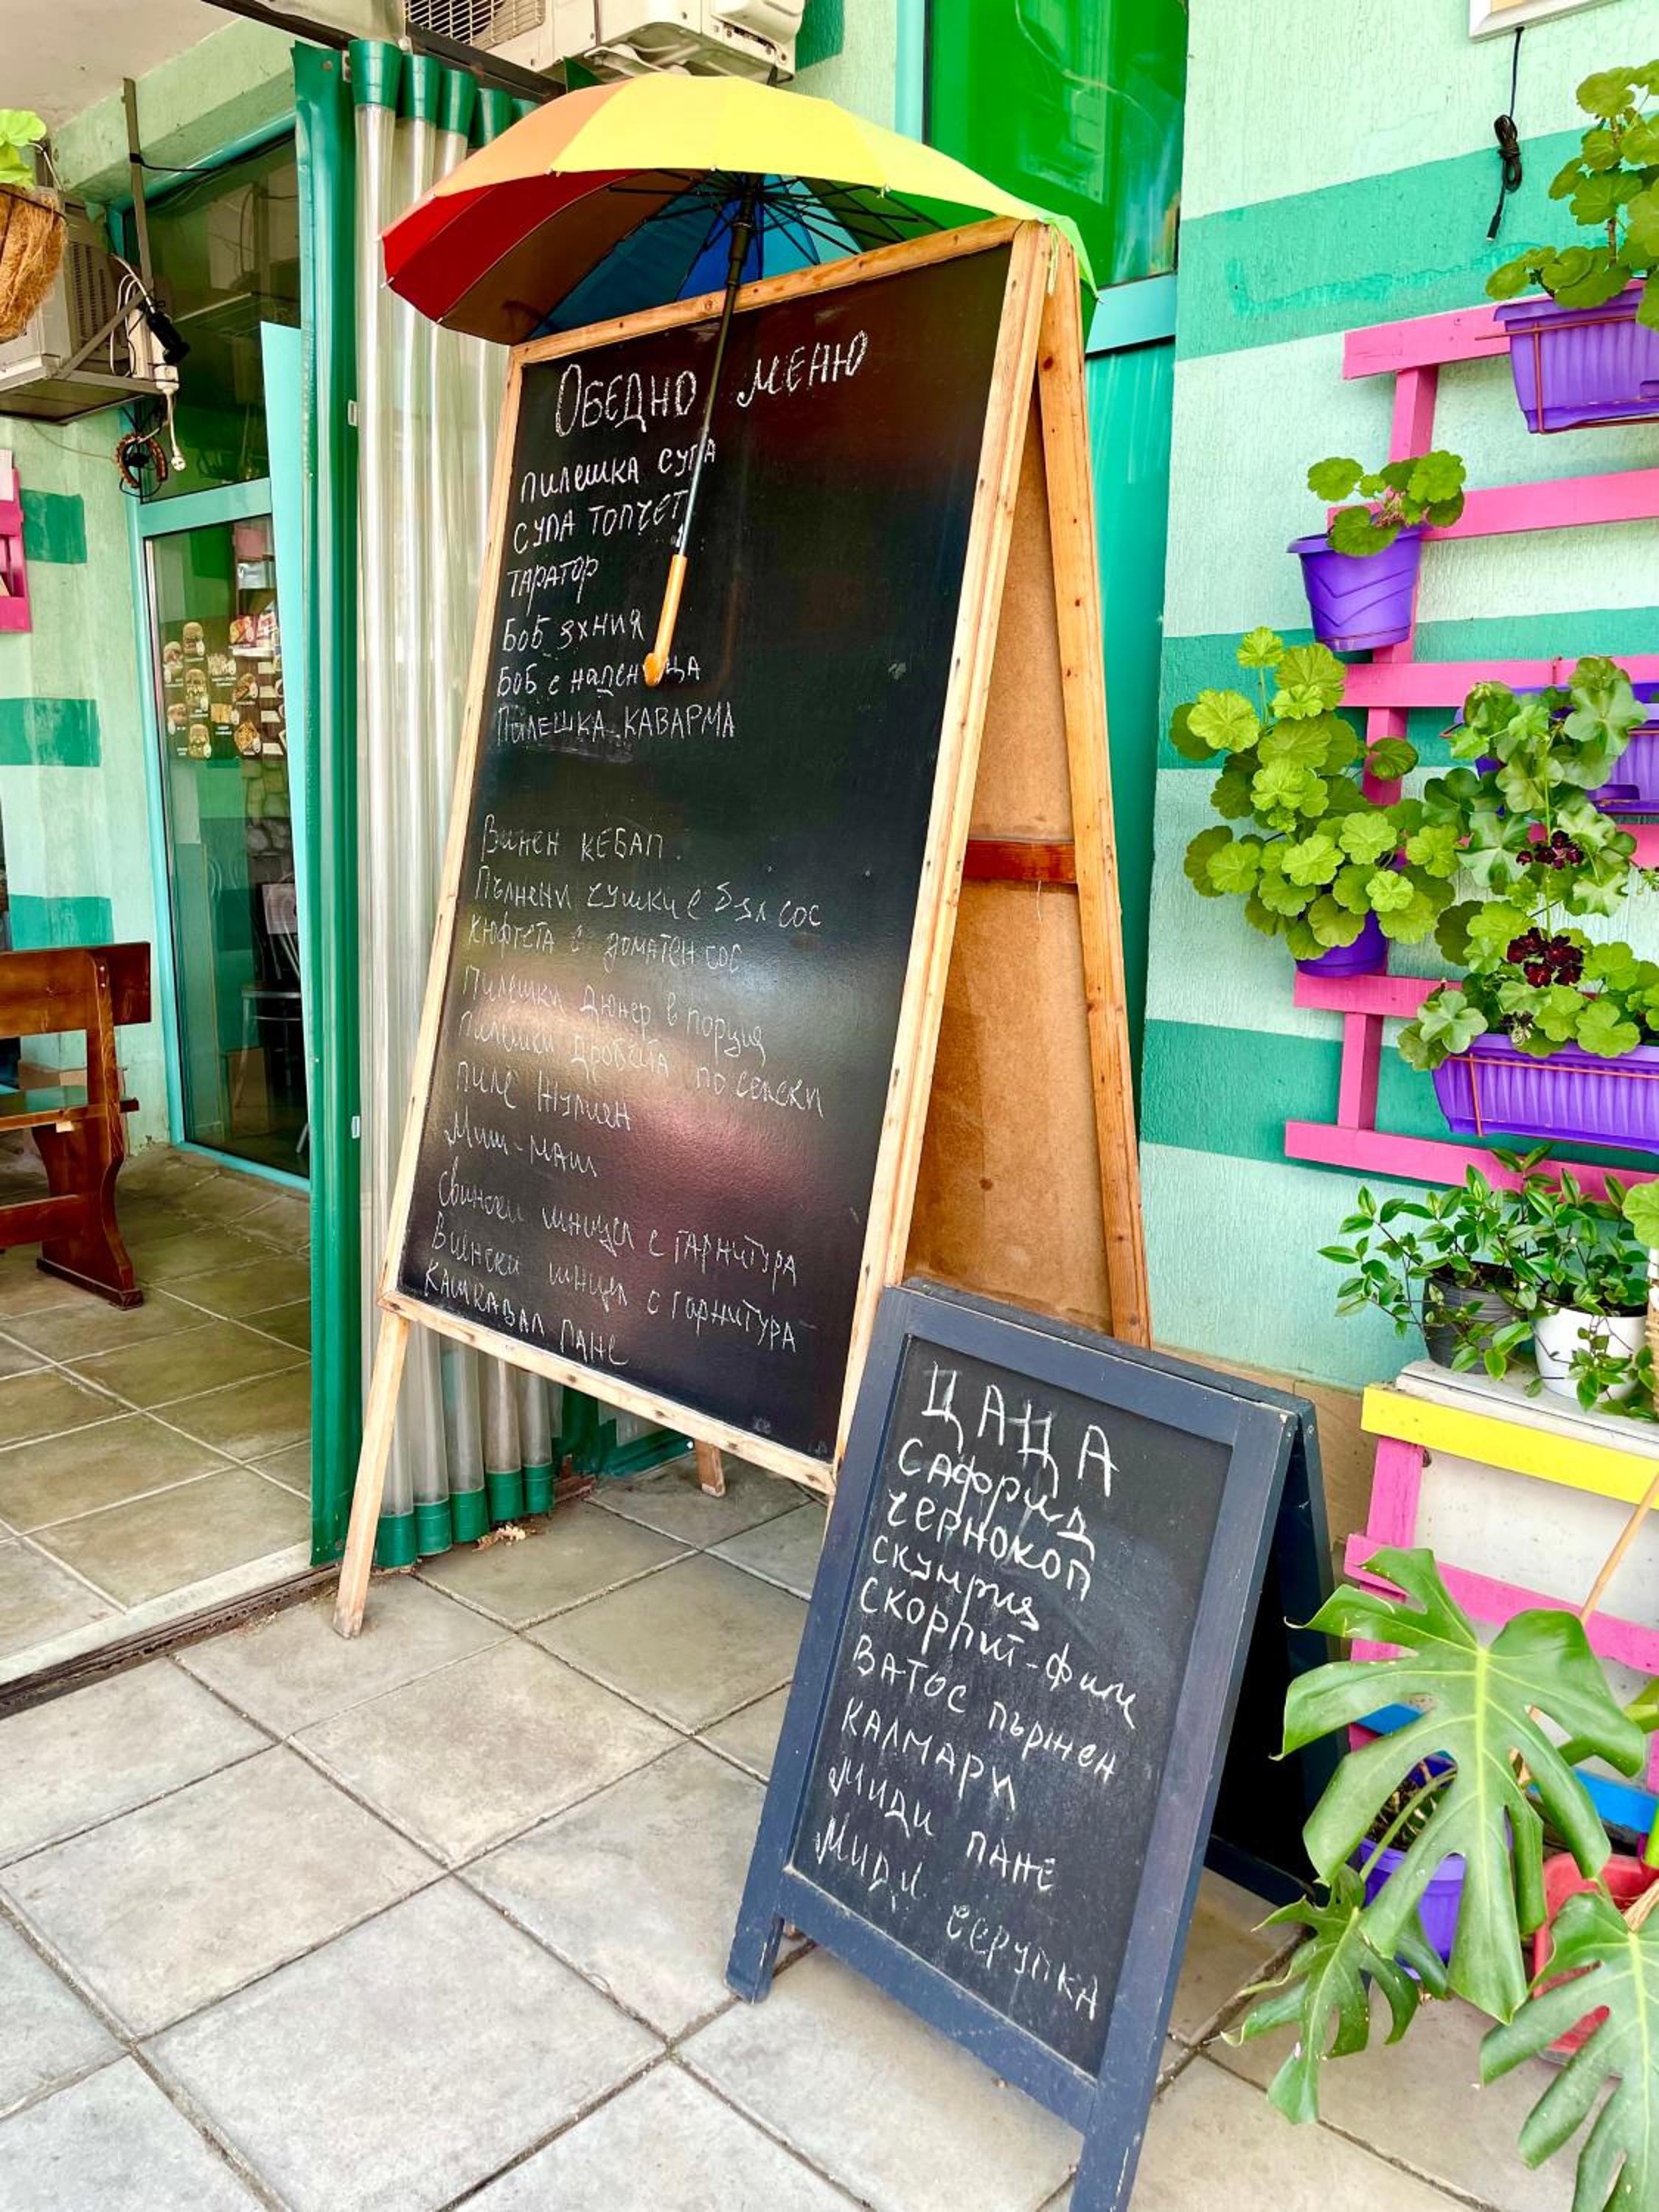 ОБЕДНО МЕНЮ
ПИЛЕШКА СУПА
СУПА ТОПЧЕТ
ТАРАТОР
БОБ ЯХНИЯ
БОБ с НАДЕНИЦА
ПИЛЕШКА КАВАРМА
Винен КЕБАП.
Пълнени чушки с бял сос
Кюфтета с доматен сос
Пилешки дюнер в порция
Пилешки дробчета по селски
Пиле Жулиен
Миш-маш
Свински шницел с ГАРНИТУРА
Виенски шницел с ГАРНИТУРА
КАШКАВАЛ ПАНЕ
ЦАЦА
САФРИД
ЧЕРНОКОП
СКУМРИЯ
СКОРПИТ-филе
ВАТОС ПЪРЖЕН
КАЛМАРИ
МИДИ ПАНЕ
МИДИ ЧЕРУПКА